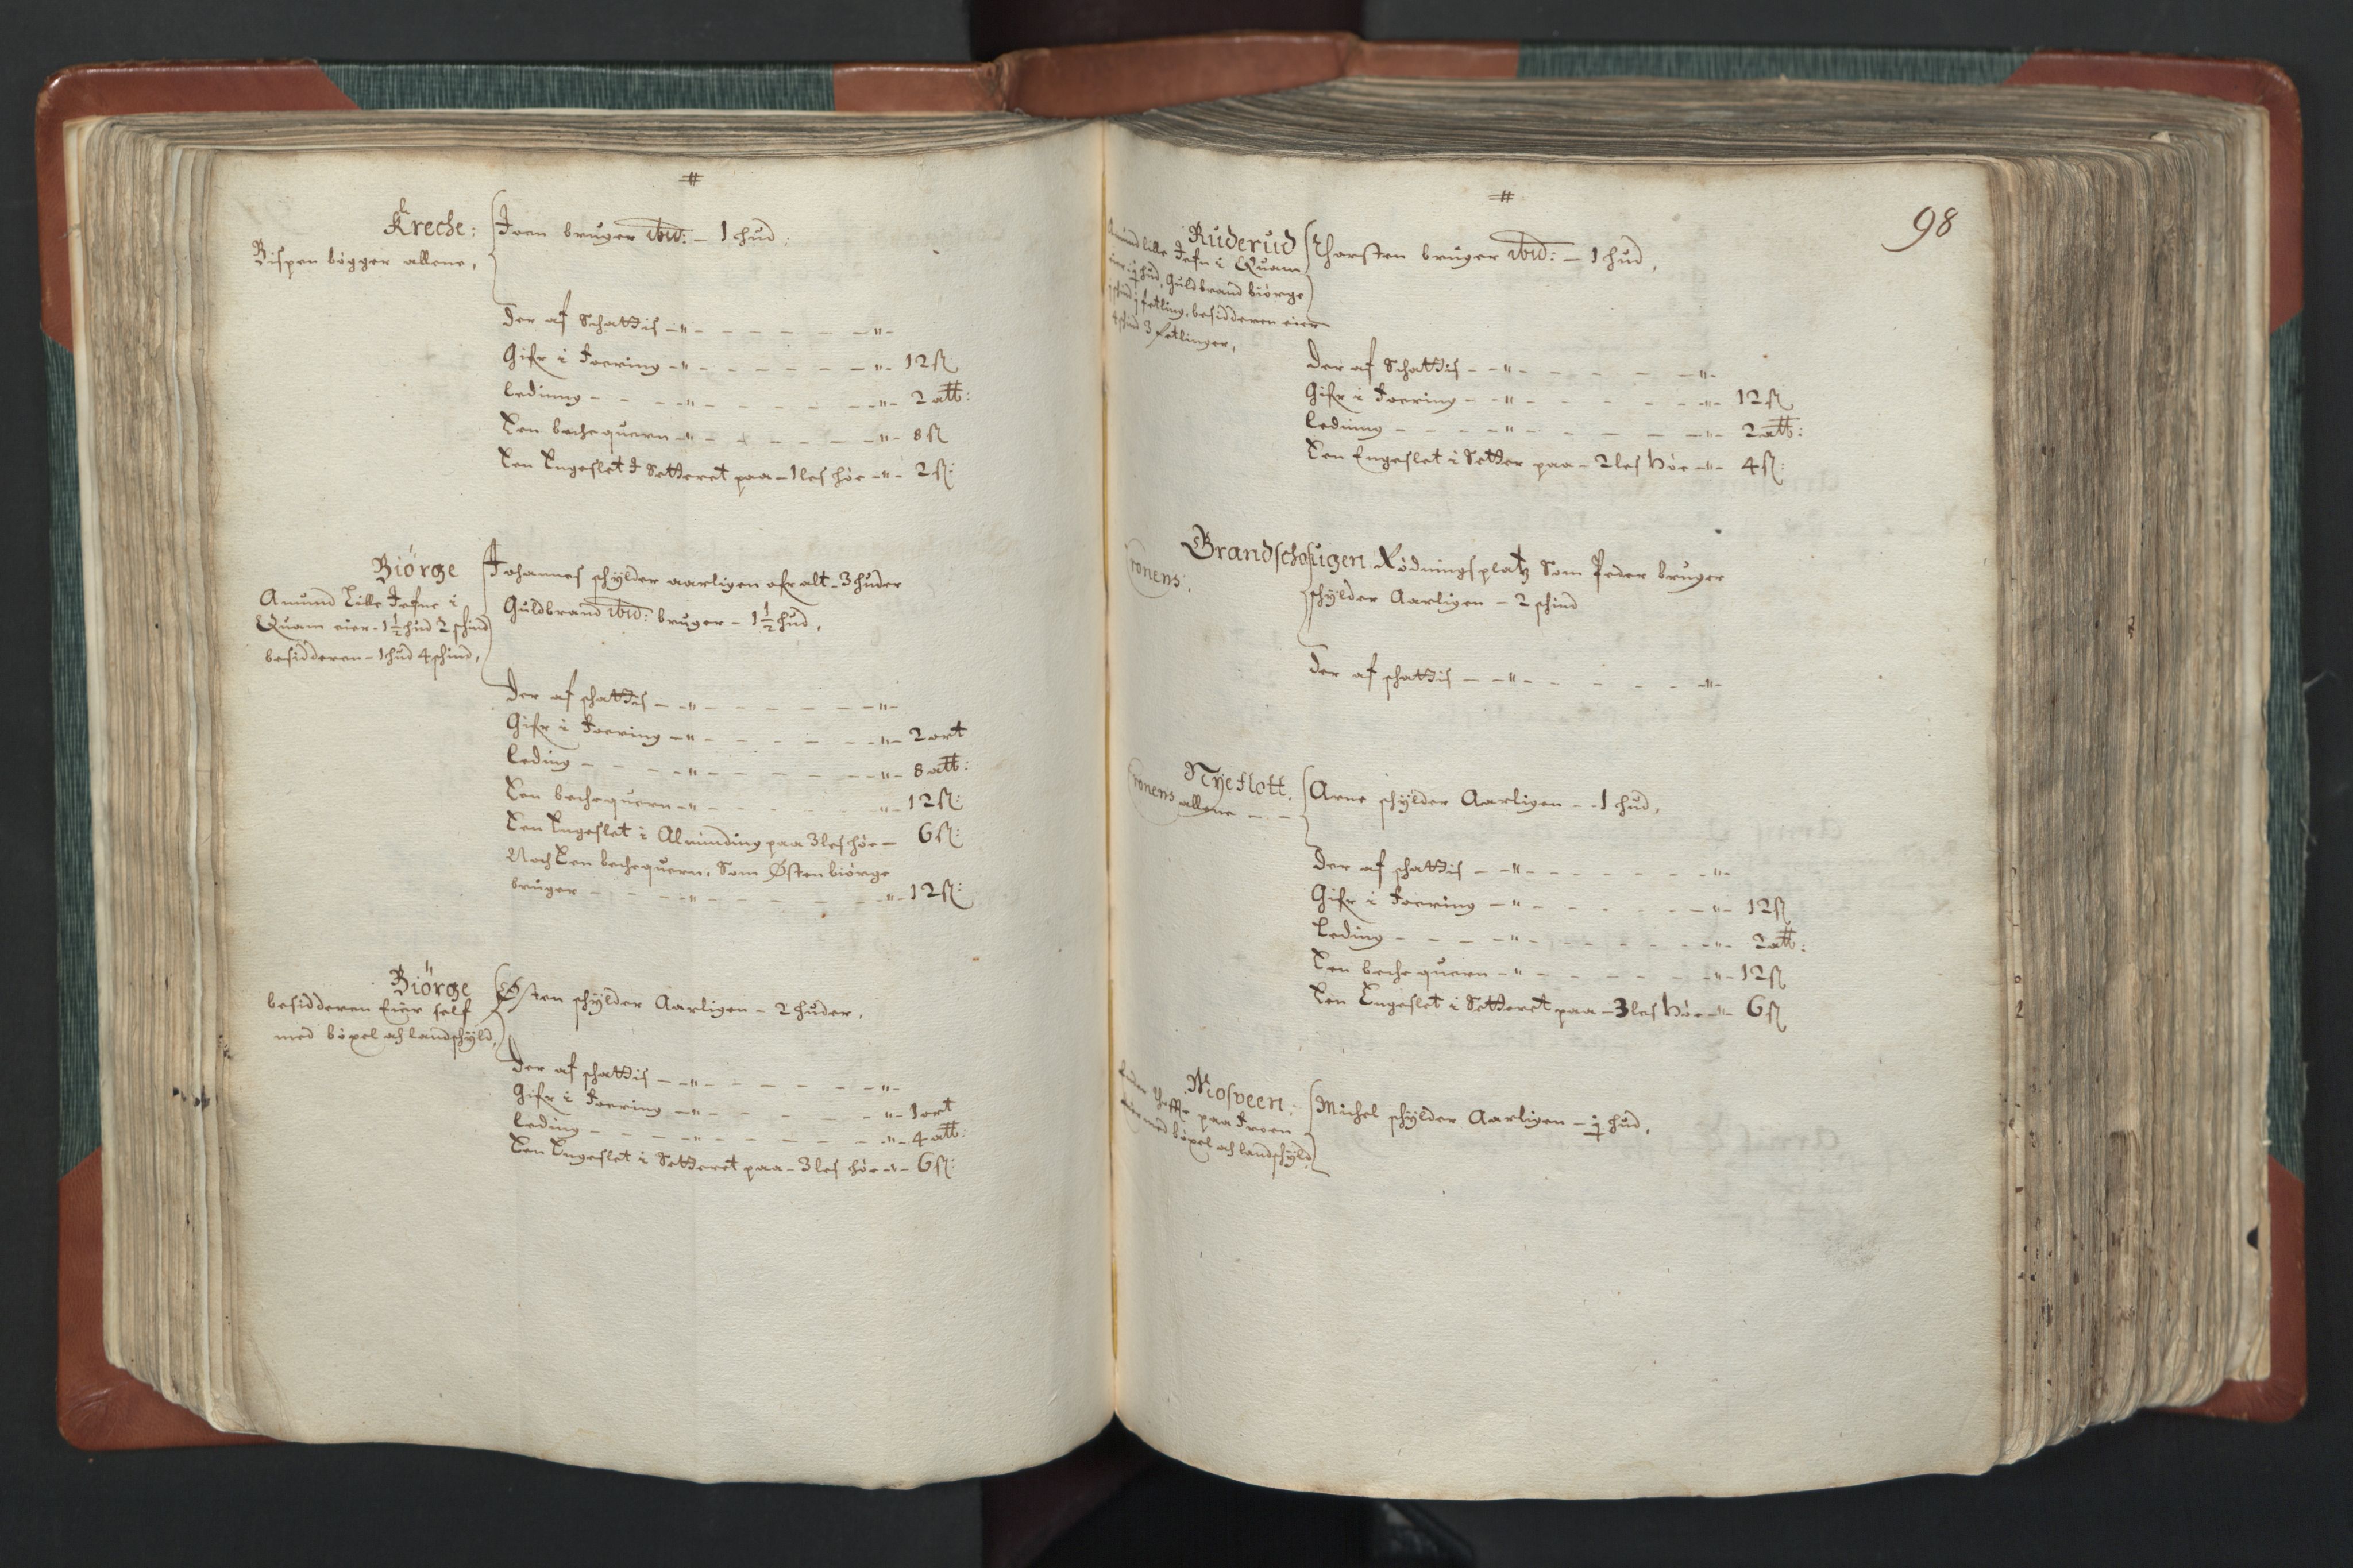 #
Kreche:
Bispen bøgger allene,
Joen bruger ibid: – 1 hud,
Der af Schattis – " – – – – – – " –
Gifr i Foering – " – – – – – – " – 12 ß
Leding – – – – " – – – – – – " – 2 alb:
Een bechequern – " – – – – – – " – 8 ß
Een Engeslet i Setteret paa – 1 les høe – " – 2 ß:
Biörge
Amund Lille Jefne i
Quam eier – 1½ hud 2 schind
besidderen – 1 hud 4 schind,
Johannes schylder aarligen ofr alt – 3 huder
Guldbrand ibid: bruger – 1½ hud,
Der af schattis – – " – – – – – – " –
Gifr i Foering – " – – – – – – " – 2 ort
Leding – – – – " – – – – – – " – 8 alb:
Een bechequern – " – – – – " – 12 ß:
Een Engeslet i Alminding paa 3 les høe – 6 ß:
Noch Een bechequern, Som Østen biörge
bruger – – – – " – – – – – " – 12 ß:
Biörge
besidderen Eier self
med böxel och landschyld,
Østen schylder Aarligen – 2 huder,
Der af schattis – – " – – – – – – " –
Gifr i Foering – " – – – – – " – 1 ort
Leding – – – – " – – – – – – " – 4 alb:
Een Engeslet i Setteret paa – 3 les høe – " – 6 ß:
#
98
Ruderud
Amund Lille Jefne i Quam
eier – ½ hud, Guldbrand biörge
1 fetling, besidderen eier
4 schind 3 fetlinger,
Thorsten bruger ibid: – 1 hud,
Der af Schattis – – " – – – – – – " –
Gifr i Foering – – " – – – – – – " – 12 ß
Leding – – – – " – – – – – – " – 2 alb:
Een Engeslet i Setter paa – 2 les höe – " – 4 ß:
Brandschougen
Cronens:
Rödningsplatz Som Peder bruger
schylder Aarligen – 2 schind
Der af schattis – – " – – – – – – " –
Nyeflott.
Cronens allene – –
Arne schylder Aarligen – – 1 hud,
Der af schattis – – " – – – – – – " –
Gifr i Foering – " – – – – – – " – 12 ß
Leding – – – – " – – – – – – " – 2 alb:
Een beche quern – " – – – – – – " – 12 ß
Een Engeslet i Setteret paa – 3 les höe – " – 6 ß
Mosveen:
paa Froen
eier med böxel och landschyld,
Michel schylder Aarligen – ½ hud,